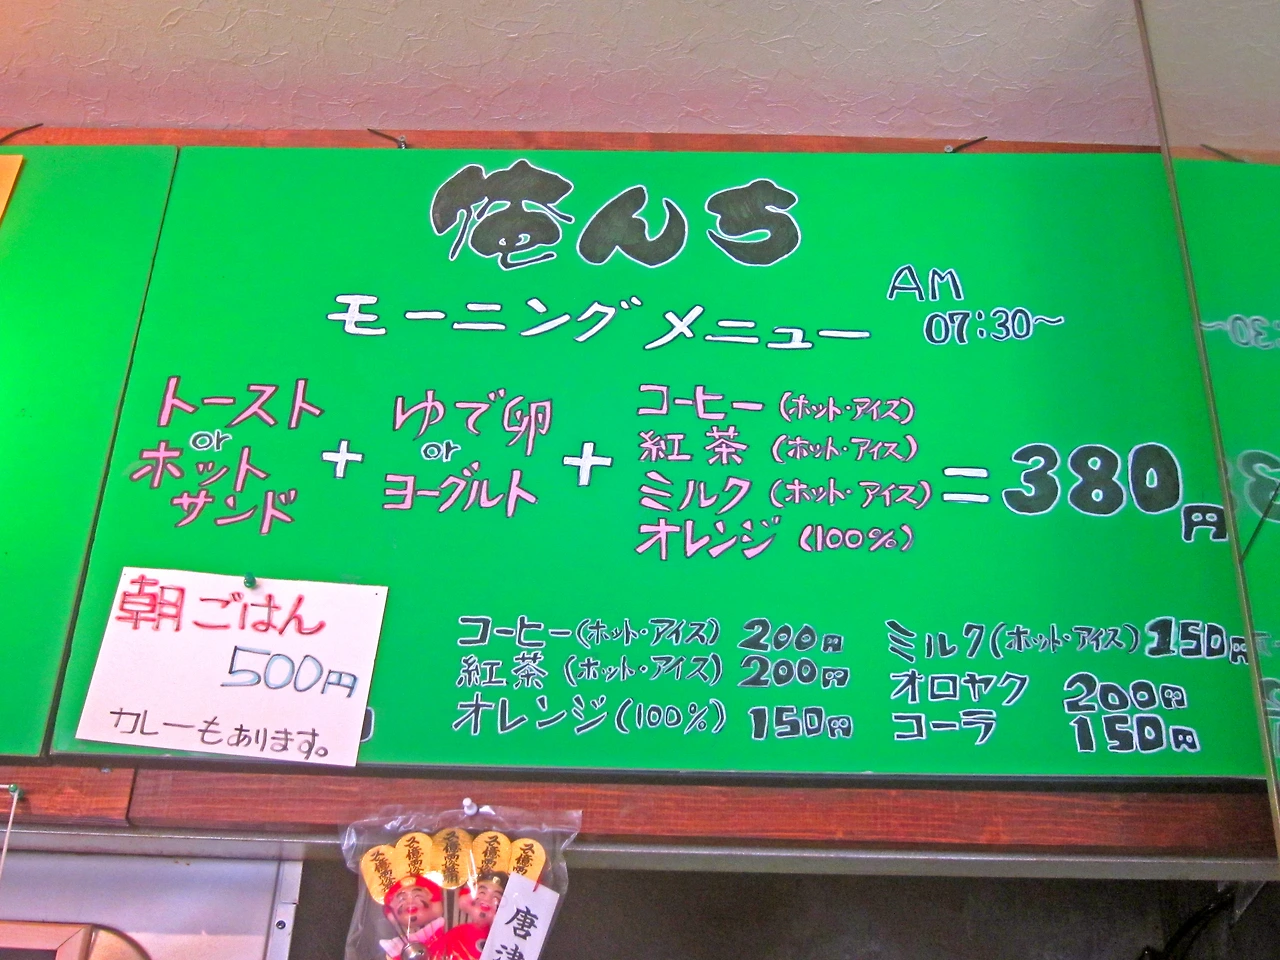 俺んち
モーニングメニュー
AM
07:30~
トースト
or
ホット
サンド
+
ゆで卵
or
ヨーグルト
+
コーヒー(ホット・アイス)
紅茶(ホット・アイス)
ミルク(ホット・アイス)
オレンジ(100%)
=380円
朝ごはん
500円
カレーもあります。
コーヒー(ホット・アイス) 200円
紅茶(ホット・アイス) 200円
オレンジ(100%) 150円
ミルク(ホット・アイス) 150円
オロヤク 200円
コーラ 150円
唐津